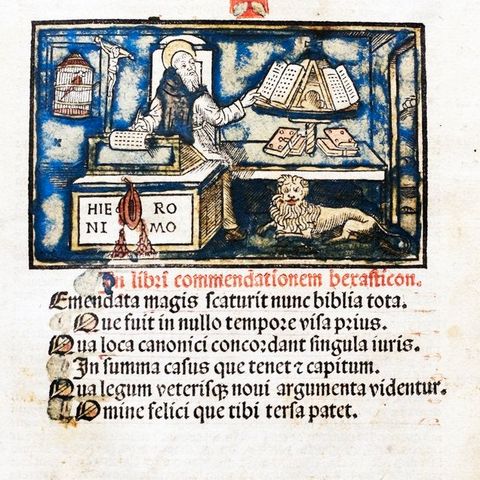 HIE RO
NI MO
In libri commendationem herasticon.
Emendata magis scaturit nunc biblia tota.
Que fuit in nullo tempore visa prius.
Qua loca canonici concordant singula iuris.
In summa casus que tenet ⁊ capitum.
Qua legum veterisqꝫ noui argumenta videntur.
Omine felici que tibi tersa patet.